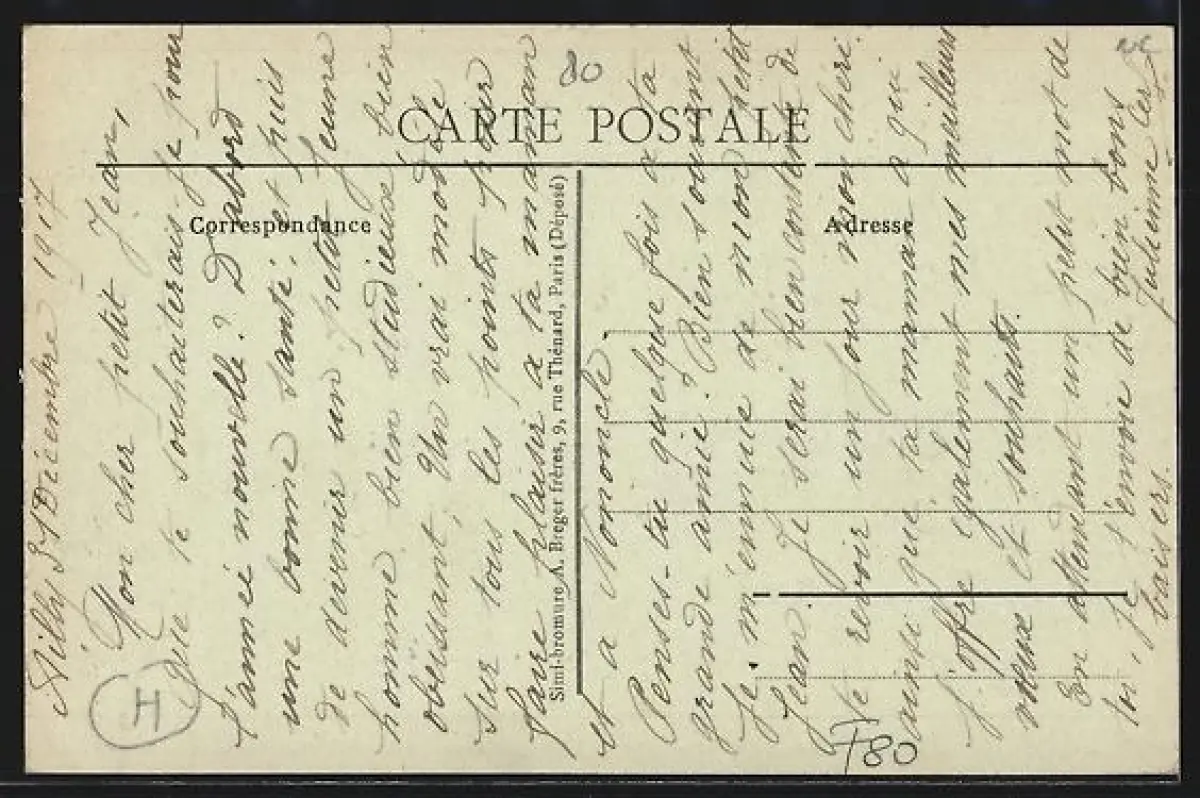 CARTE POSTALE
Correspondance
Adresse
Simi-bromure A. Breger frères, 9, rue Thénard, Paris (Déposé)
31 Décembre 1917
Mon cher petit Jean,
Que te souhaiterais-je pour
l'année nouvelle? D'abord
une bonne santé; et puis
de devenir un petit jeune
homme bien studieux bien
obéissant, Un vrai modèle
sur tous les points pour
faire plaisir à ta maman
et à Nononcle.
Penses-tu quelque fois à ta
grande amie? Bien souvent
Je m'ennuie de mon petit
Jean. Je serai bien contente de
te revoir un jour mon chéri.
ainsi que ta maman à qui
j'offre également mes meilleurs
vœux et souhaits.
En attendant un petit mot de
toi, je t'envoie de bien bons
baisers.
80
H
T80